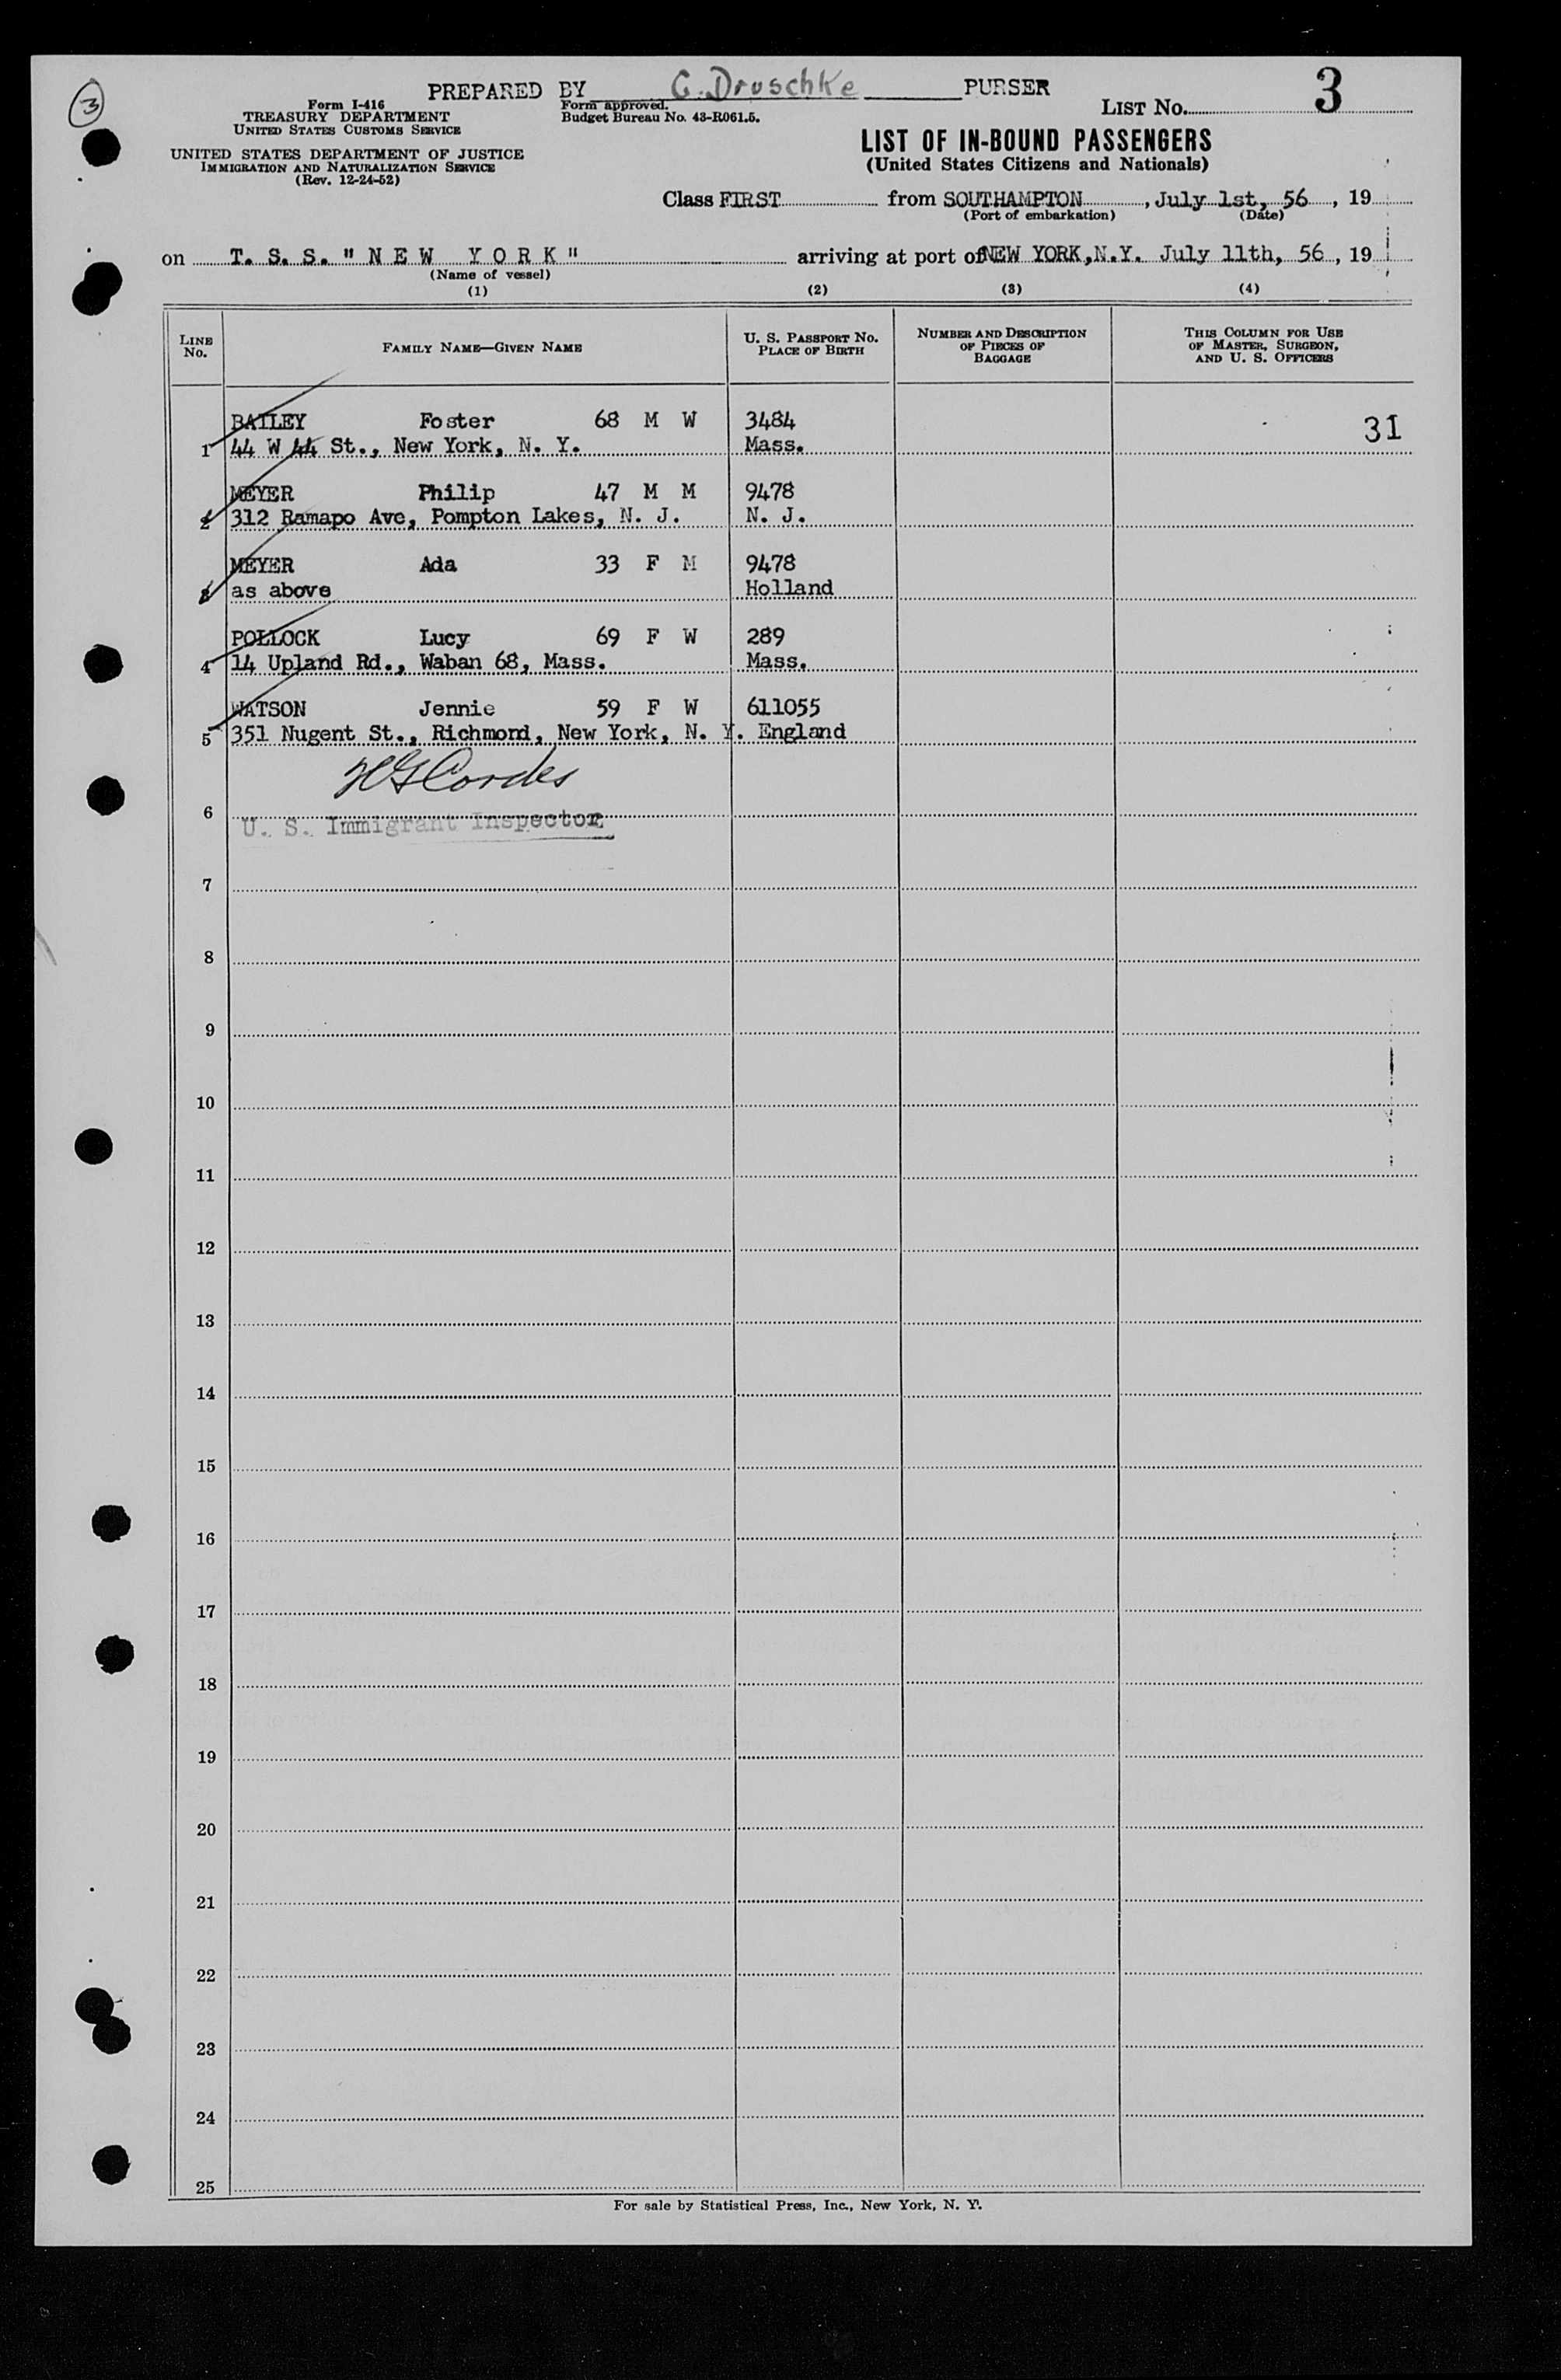 3
PREPARED BY G. Druschke PURSER
Form I-416
TREASURY DEPARTMENT
UNITED STATES CUSTOMS SERVICE
UNITED STATES DEPARTMENT OF JUSTICE
IMMIGRATION AND NATURALIZATION SERVICE
(Rev. 12-24-52)
Form approved.
Budget Bureau No. 43-R061.5.
LIST No. 3
LIST OF IN-BOUND PASSENGERS
(United States Citizens and Nationals)
Class FIRST from SOUTHAMPTON, July 1st, 56, 19
(Port of embarkation) (Date)
on T. S. S. "NEW YORK" arriving at port of NEW YORK, N.Y. July 11th, 56, 19
(Name of vessel)
(1) (2) (3) (4)
LINE No. FAMILY NAME—GIVEN NAME U. S. PASSPORT No. PLACE OF BIRTH NUMBER AND DESCRIPTION OF PIECES OF BAGGAGE THIS COLUMN FOR USE OF MASTER, SURGEON, AND U. S. OFFICERS
BAILEY Foster 68 M W 3484 31
1 44 W 44 St., New York, N. Y. Mass.
MEYER Philip 47 M M 9478
2 312 Ramapo Ave, Pompton Lakes, N. J. N. J.
MEYER Ada 33 F M 9478
3 as above Holland
POLLOCK Lucy 69 F W 289
4 14 Upland Rd., Waban 68, Mass. Mass.
WATSON Jennie 59 F W 611055
5 351 Nugent St., Richmond, New York, N. Y. England
HG Cordes
6
U. S. Immigrant Inspector
7
8
9
10
11
12
13
14
15
16
17
18
19
20
21
22
23
24
25
For sale by Statistical Press, Inc., New York, N. Y.